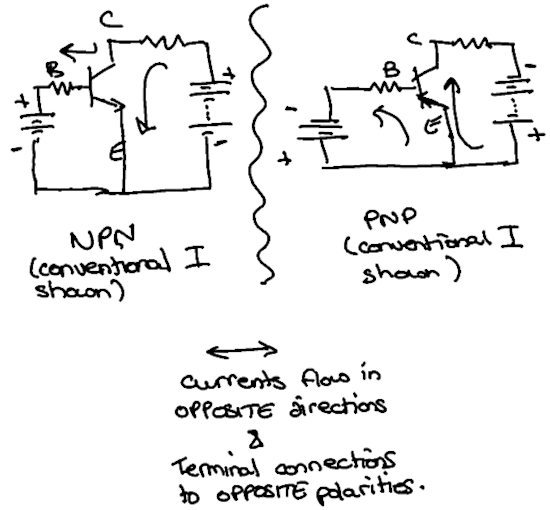 C
B
+
-
E
+
-
NPN
(conventional I
shown)
C
B
-
+
E
-
+
PNP
(conventional I
shown)
currents flow in
OPPOSITE directions
&
Terminal connections
to OPPOSITE polarities.